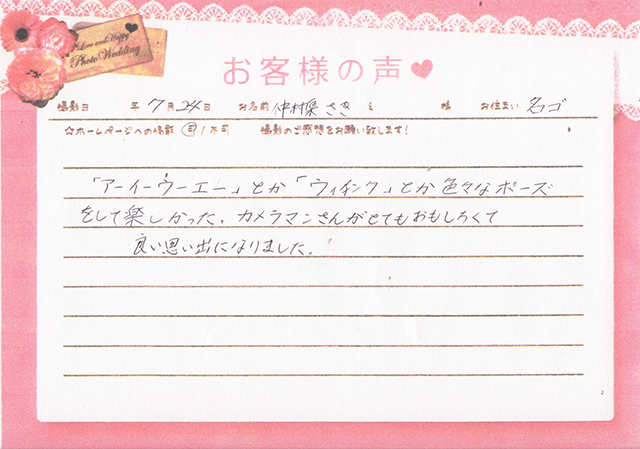 Love and Happy
Photo Wedding
お客様の声
撮影日 年 7月 24日 お名前 仲村渠 さき 様 お住まい 名ゴ
☆ホームページへの掲載 可 / 不可 撮影のご感想をお願い致します!
「アーイーウーエー」とか「ウィンク」とか色々なポーズ
をして楽しかった。カメラマンさんがとてもおもしろくて
良い思い出になりました。